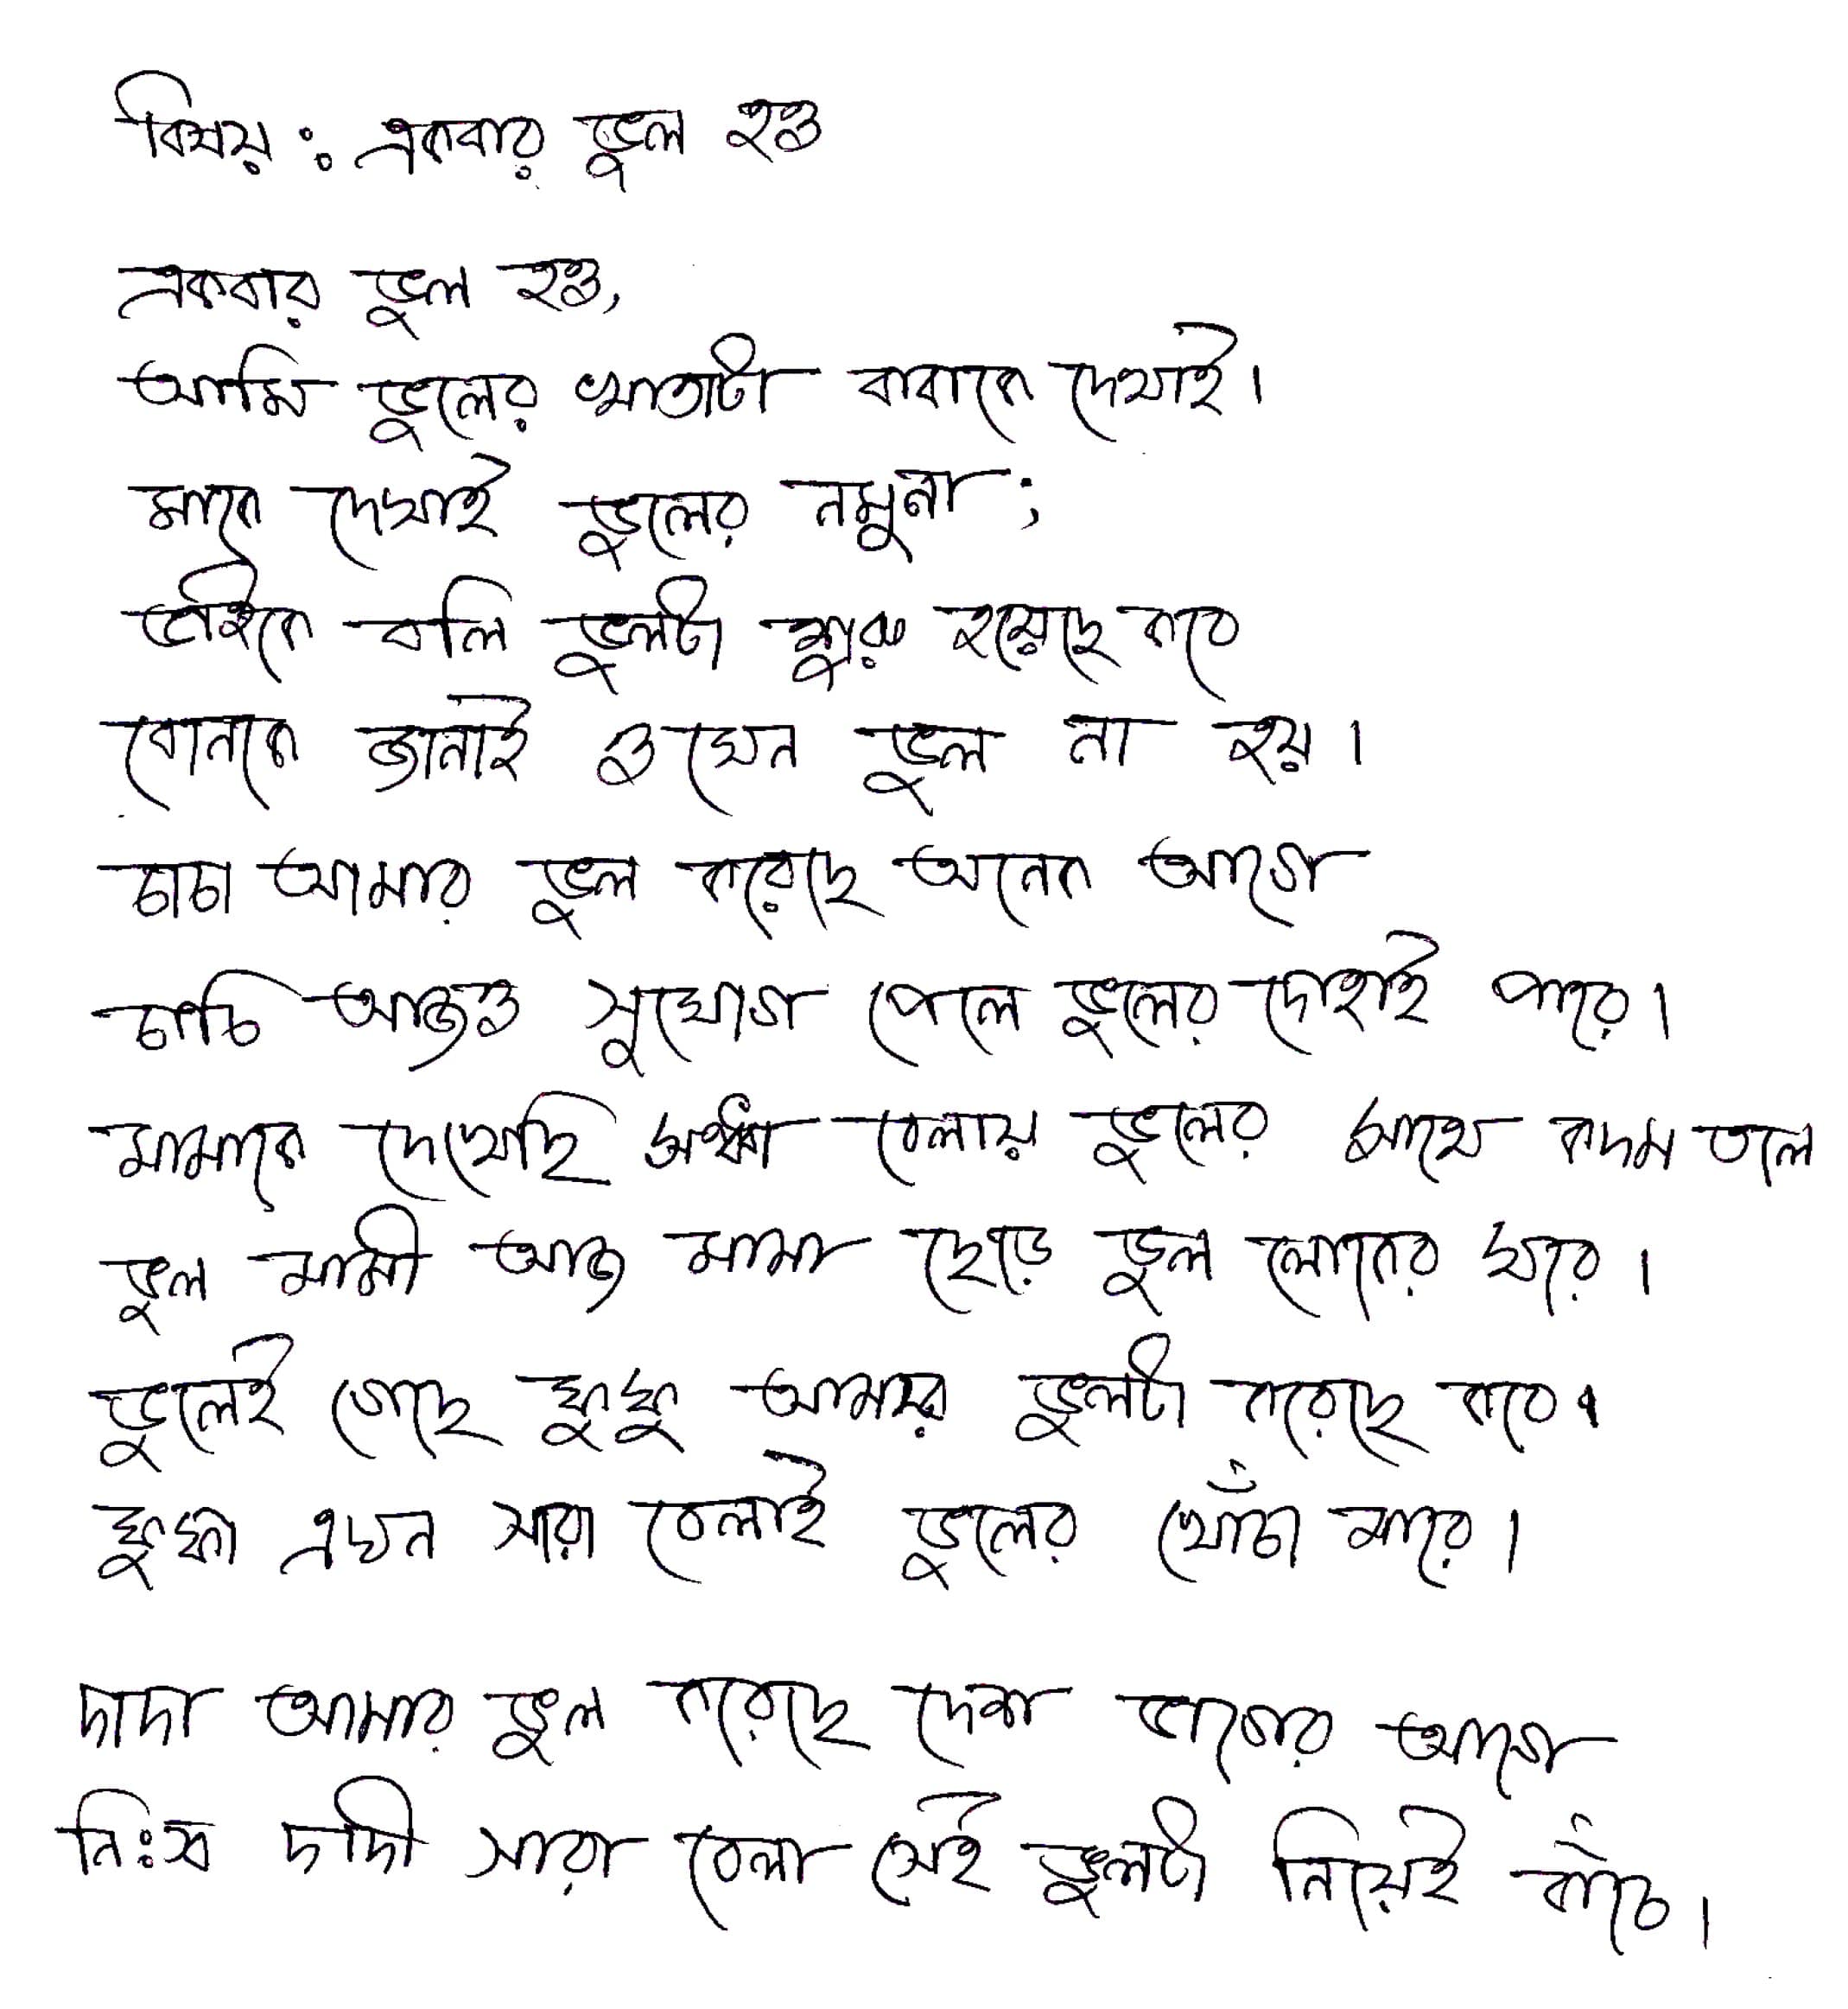 বিষয়: একবার ভুল হও
একবার ভুল হও,
আমি ভুলের খাতাটা বাবাকে দেখাই।
মাকে দেখাই ভুলের নমুনা;
ভাইকে বলি ভুলটা শুরু হয়েছে কবে
বোনকে জানাই ও যেন ভুল না হয়।
চাচা আমার ভুল করেছে অনেক আগে
চাচি আজও সুযোগ পেলে ভুলের দোহাই পারে।
মামাকে দেখেছি সন্ধ্যা বেলায় ভুলের সাথে কদম তলে
ভুল মামী আজ মামা ছেড়ে ভুল লোকের ঘরে।
ভুলেই গেছে ফুফু আমার ভুলটা করেছে কবে।
ফুফা এখন সারা বেলাই ভুলের খোঁচা মারে।
দাদা আমার ভুল করেছে দেশ ভাগের আগে
নিঃস্ব দাদী সারা বেলা সেই ভুলটা নিয়েই বাঁচে।